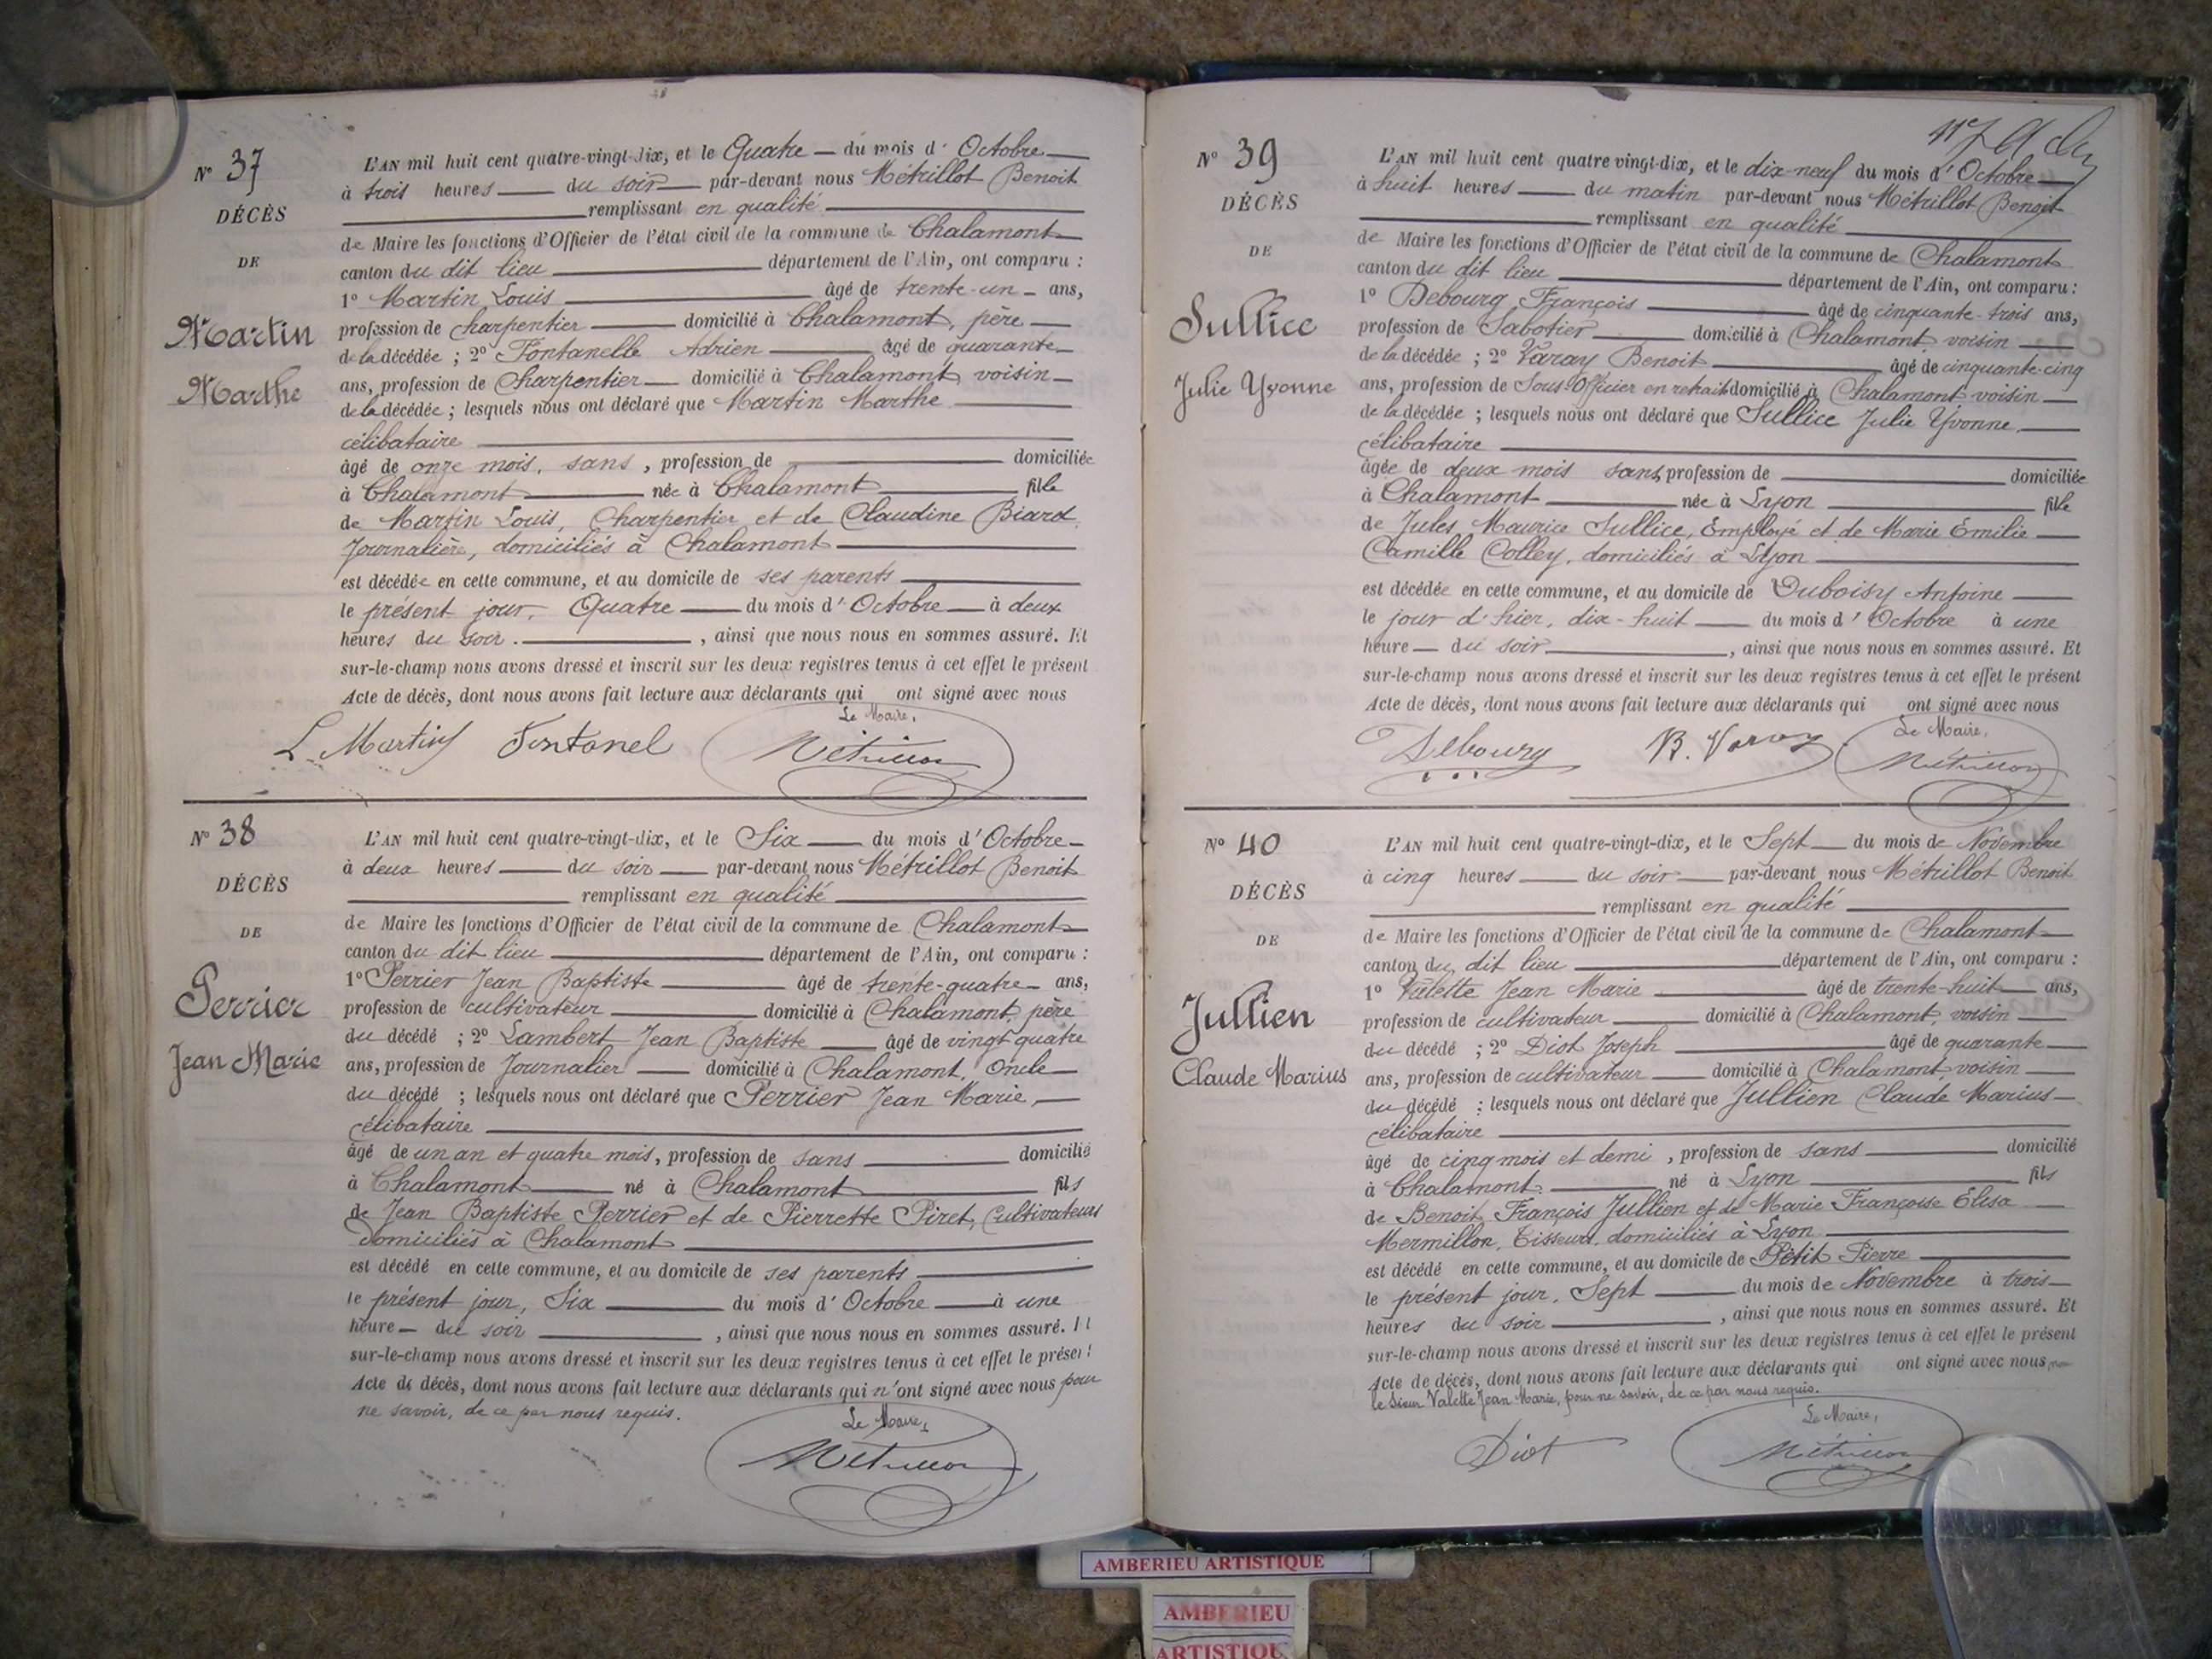 N° 37
DÉCÈS
DE
Martin
Marthe
L'AN mil huit cent quatre-vingt-dix, et le Quatre — du mois d' Octobre —
à trois heures — du soir — par-devant nous Métrillot Benoit
remplissant en qualité
de Maire les fonctions d'Officier de l'état civil de la commune de Chalamont
canton du dit lieu — département de l'Ain, ont comparu :
1° Martin Louis — âgé de trente-un — ans,
profession de charpentier — domicilié à Chalamont, père —
de la décédée ; 2° Fontanelle Adrien — âgé de quarante —
ans, profession de Charpentier — domicilié à Chalamont, voisin —
de la décédée ; lesquels nous ont déclaré que Martin Marthe —
célibataire —
âgé de onze mois, sans, profession de — domiciliée
à Chalamont — née à Chalamont — fille
de Martin Louis, Charpentier et de Claudine Biard,
Journalière, domiciliés à Chalamont —
est décédée en cette commune, et au domicile de ses parents —
le présent jour, Quatre — du mois d' Octobre — à deux
heures du soir. — , ainsi que nous nous en sommes assuré. Et
sur-le-champ nous avons dressé et inscrit sur les deux registres tenus à cet effet le présent
Acte de décès, dont nous avons fait lecture aux déclarants qui ont signé avec nous
Le Maire,
L. Martin Fontanel Métrillot
N° 38
DÉCÈS
DE
Perrier
Jean Marie
L'AN mil huit cent quatre-vingt-dix, et le Six — du mois d' Octobre —
à deux heures — du soir — par-devant nous Métrillot Benoit
remplissant en qualité —
de Maire les fonctions d'Officier de l'état civil de la commune de Chalamont
canton du dit lieu — département de l'Ain, ont comparu :
1° Perrier Jean Baptiste — âgé de trente-quatre — ans,
profession de cultivateur — domicilié à Chalamont, père
du décédé ; 2° Lambert Jean Baptiste — âgé de vingt quatre
ans, profession de Journalier — domicilié à Chalamont, Oncle —
du décédé ; lesquels nous ont déclaré que Perrier Jean Marie, —
célibataire —
âgé de un an et quatre mois, profession de sans — domicilié
à Chalamont — né à Chalamont — fils
de Jean Baptiste Perrier et de Pierrette Piret, Cultivateurs
domiciliés à Chalamont —
est décédé en cette commune, et au domicile de ses parents —
le présent jour, Six — du mois d' Octobre — à une
heure — du soir — , ainsi que nous nous en sommes assuré. Et
sur-le-champ nous avons dressé et inscrit sur les deux registres tenus à cet effet le présent
Acte de décès, dont nous avons fait lecture aux déclarants qui n'ont signé avec nous pour
ne savoir, de ce par nous requis.
Le Maire,
Métrillot
117
N° 39
DÉCÈS
DE
Sullice
Julie Yvonne
L'AN mil huit cent quatre vingt-dix, et le dix-neuf du mois d' Octobre —
à huit heures — du matin par-devant nous Métrillot Benoit
remplissant en qualité —
de Maire les fonctions d'Officier de l'état civil de la commune de Chalamont
canton du dit lieu — département de l'Ain, ont comparu :
1° Debourg François — âgé de cinquante-trois ans,
profession de Sabotier — domicilié à Chalamont, voisin —
de la décédée ; 2° Varay Benoit — âgé de cinquante-cinq
ans, profession de Sous-Officier en retrait domicilié à Chalamont voisin —
de la décédée ; lesquels nous ont déclaré que Sullice Julie Yvonne, —
célibataire —
âgée de deux mois sans, profession de — domiciliée
à Chalamont — née à Lyon — fille
de Jules Maurice Sullice, Employé et de Marie Emilie —
Camille Colley, domiciliés à Lyon —
est décédée en cette commune, et au domicile de Duboisy Antoine —
le jour d'hier, dix-huit — du mois d' Octobre à une
heure — du soir — , ainsi que nous nous en sommes assuré. Et
sur-le-champ nous avons dressé et inscrit sur les deux registres tenus à cet effet le présent
Acte de décès, dont nous avons fait lecture aux déclarants qui ont signé avec nous
Le Maire,
Debourg B. Varay Métrillot
N° 40
DÉCÈS
DE
Jullien
Claude Marius
L'AN mil huit cent quatre-vingt-dix, et le Sept — du mois de Novembre
à cinq heures — du soir — par-devant nous Métrillot Benoit
remplissant en qualité —
de Maire les fonctions d'Officier de l'état civil de la commune de Chalamont —
canton du dit lieu — département de l'Ain, ont comparu :
1° Valette Jean Marie — âgé de trente-huit — ans,
profession de cultivateur — domicilié à Chalamont, voisin —
du décédé ; 2° Diot Joseph — âgé de quarante —
ans, profession de cultivateur — domicilié à Chalamont, voisin —
du décédé ; lesquels nous ont déclaré que Jullien Claude Marius —
célibataire —
âgé de cinq mois et demi, profession de sans — domicilié
à Chalamont — né à Lyon — fils
de Benoit François Jullien et de Marie Françoise Elisa —
Mermillon, Tisseurs, domiciliés à Lyon —
est décédé en cette commune, et au domicile de Petit Pierre —
le présent jour, Sept — du mois de Novembre à trois —
heures du soir — , ainsi que nous nous en sommes assuré. Et
sur-le-champ nous avons dressé et inscrit sur les deux registres tenus à cet effet le présent
Acte de décès, dont nous avons fait lecture aux déclarants qui ont signé avec nous
le Sieur Valette Jean Marie, pour ne savoir, de ce par nous requis.
Le Maire,
Diot Métrillot
AMBERIEU ARTISTIQUE
AMBERIEU
ARTISTIQUE